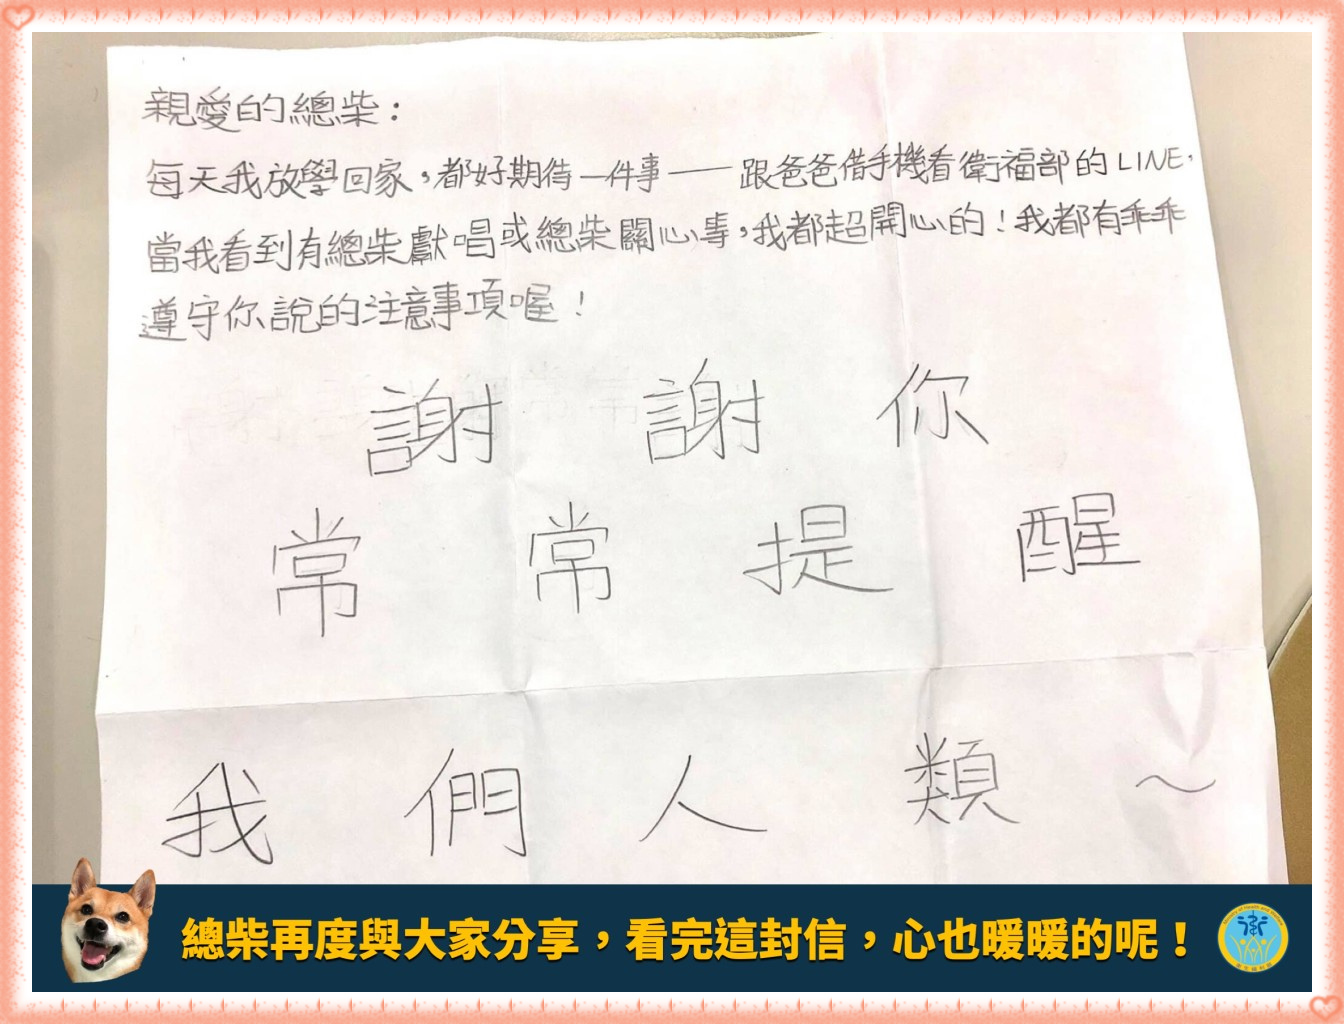 親愛的總柴：
每天我放學回家，都好期待一件事——跟爸爸借手機看衛福部的LINE，
當我看到有總柴獻唱或總柴關心事，我都超開心的！我都有乖乖
遵守你說的注意事項喔！
謝謝你
常常提醒
我們人類～
總柴再度與大家分享，看完這封信，心也暖暖的呢！